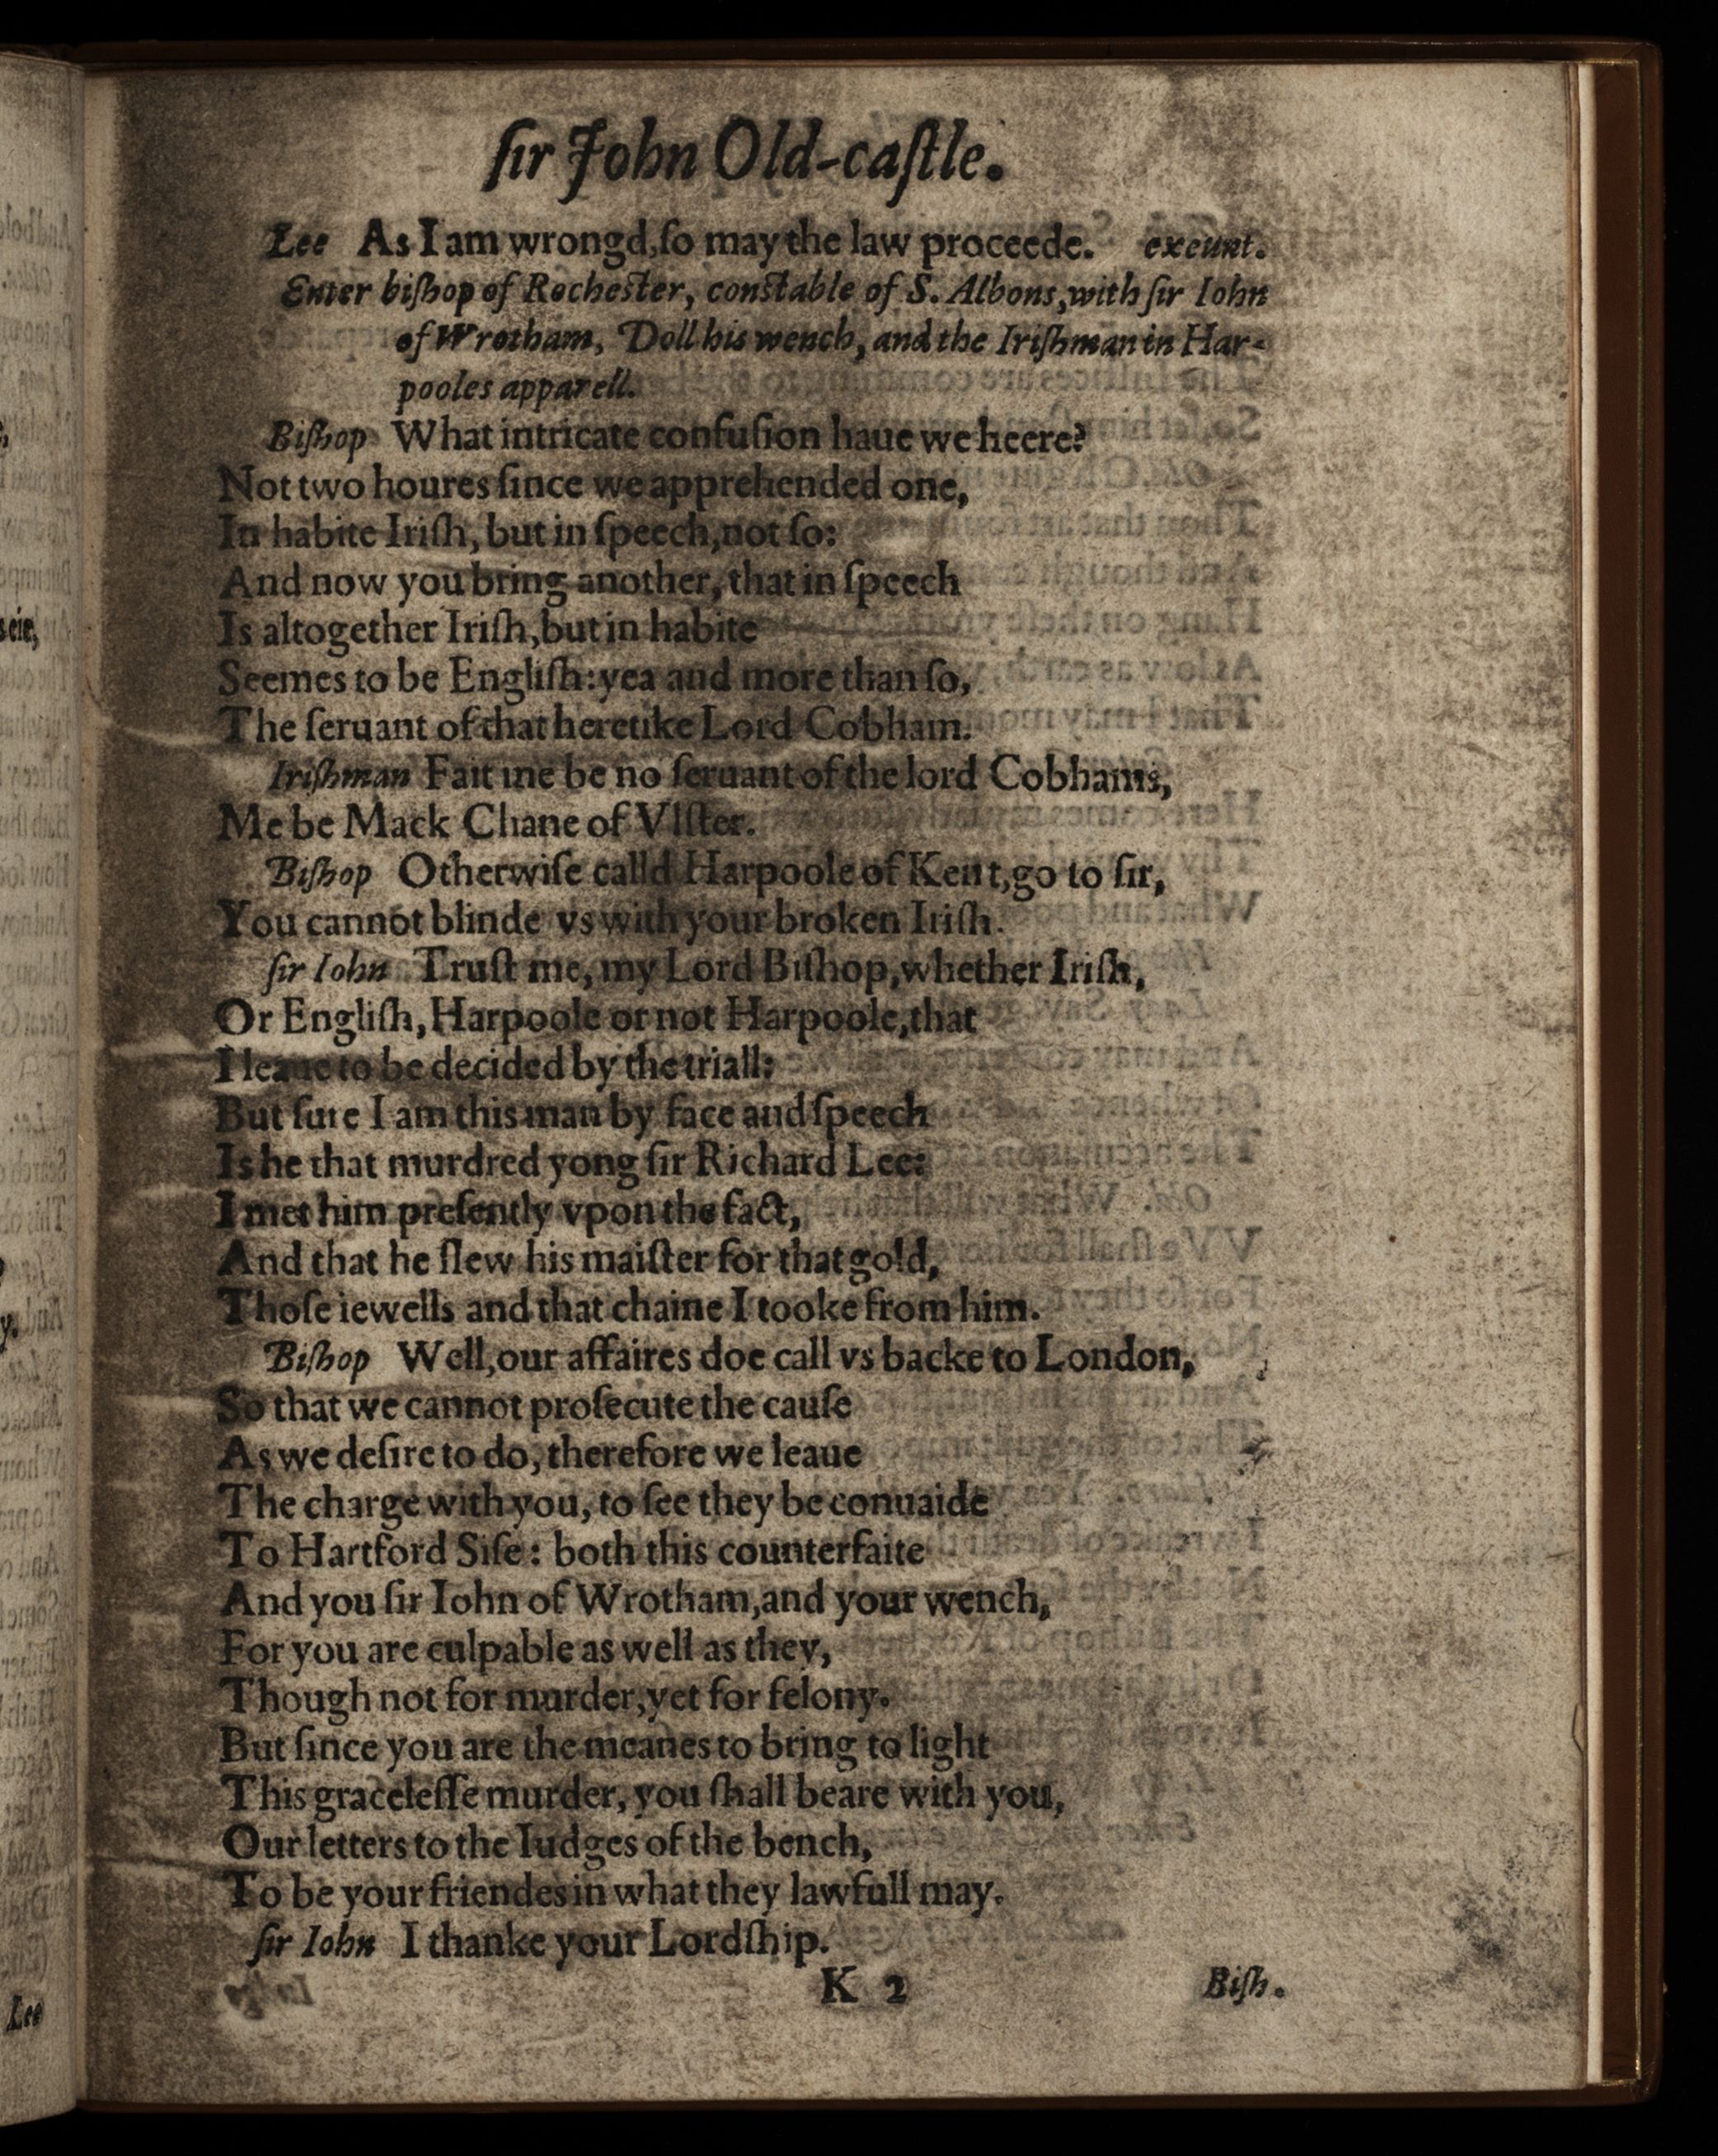 ſir John Old-caſtle.
Lee As I am wrongd, ſo may the law proceede. exeunt.
Enter biſhop of Rocheſter, conſtable of S. Albons, with ſir Iohn
of Wrotham, Doll his wench, and the Iriſhman in Har-
pooles apparell.
Biſhop What intricate confuſion haue we heere?
Not two houres ſince we apprehended one,
In habite Iriſh, but in ſpeech, not ſo:
And now you bring another, that in ſpeech
Is altogether Iriſh, but in habite
Seemes to be Engliſh: yea and more than ſo,
The ſeruant of that heretike Lord Cobham.
Iriſhman Fait me be no ſeruant of the lord Cobhams,
Me be Mack Chane of Vlſter.
Biſhop Otherwiſe calld Harpoole of Kent, go to ſir,
You cannot blinde vs with your broken Iriſh.
ſir Iohn Truſt me, my Lord Biſhop, whether Iriſh,
Or Engliſh, Harpoole or not Harpoole, that
I leaue to be decided by the triall:
But ſure I am this man by face and ſpeech
Is he that murdred yong ſir Richard Lee:
I met him preſently vpon the fact,
And that he ſlew his maiſter for that gold,
Thoſe iewells and that chaine I tooke from him.
Biſhop Well, our affaires doe call vs backe to London,
So that we cannot proſecute the cauſe
As we deſire to do, therefore we leaue
The charge with you, to ſee they be conuaide
To Hartford Siſe: both this counterfaite
And you ſir Iohn of Wrotham, and your wench,
For you are culpable as well as they,
Though not for murder, yet for felony.
But ſince you are the meanes to bring to light
This graceleſſe murder, you ſhall beare with you,
Our letters to the Iudges of the bench,
To be your friendes in what they lawfull may.
ſir Iohn I thanke your Lordſhip.
K 2 Biſh.
Lee